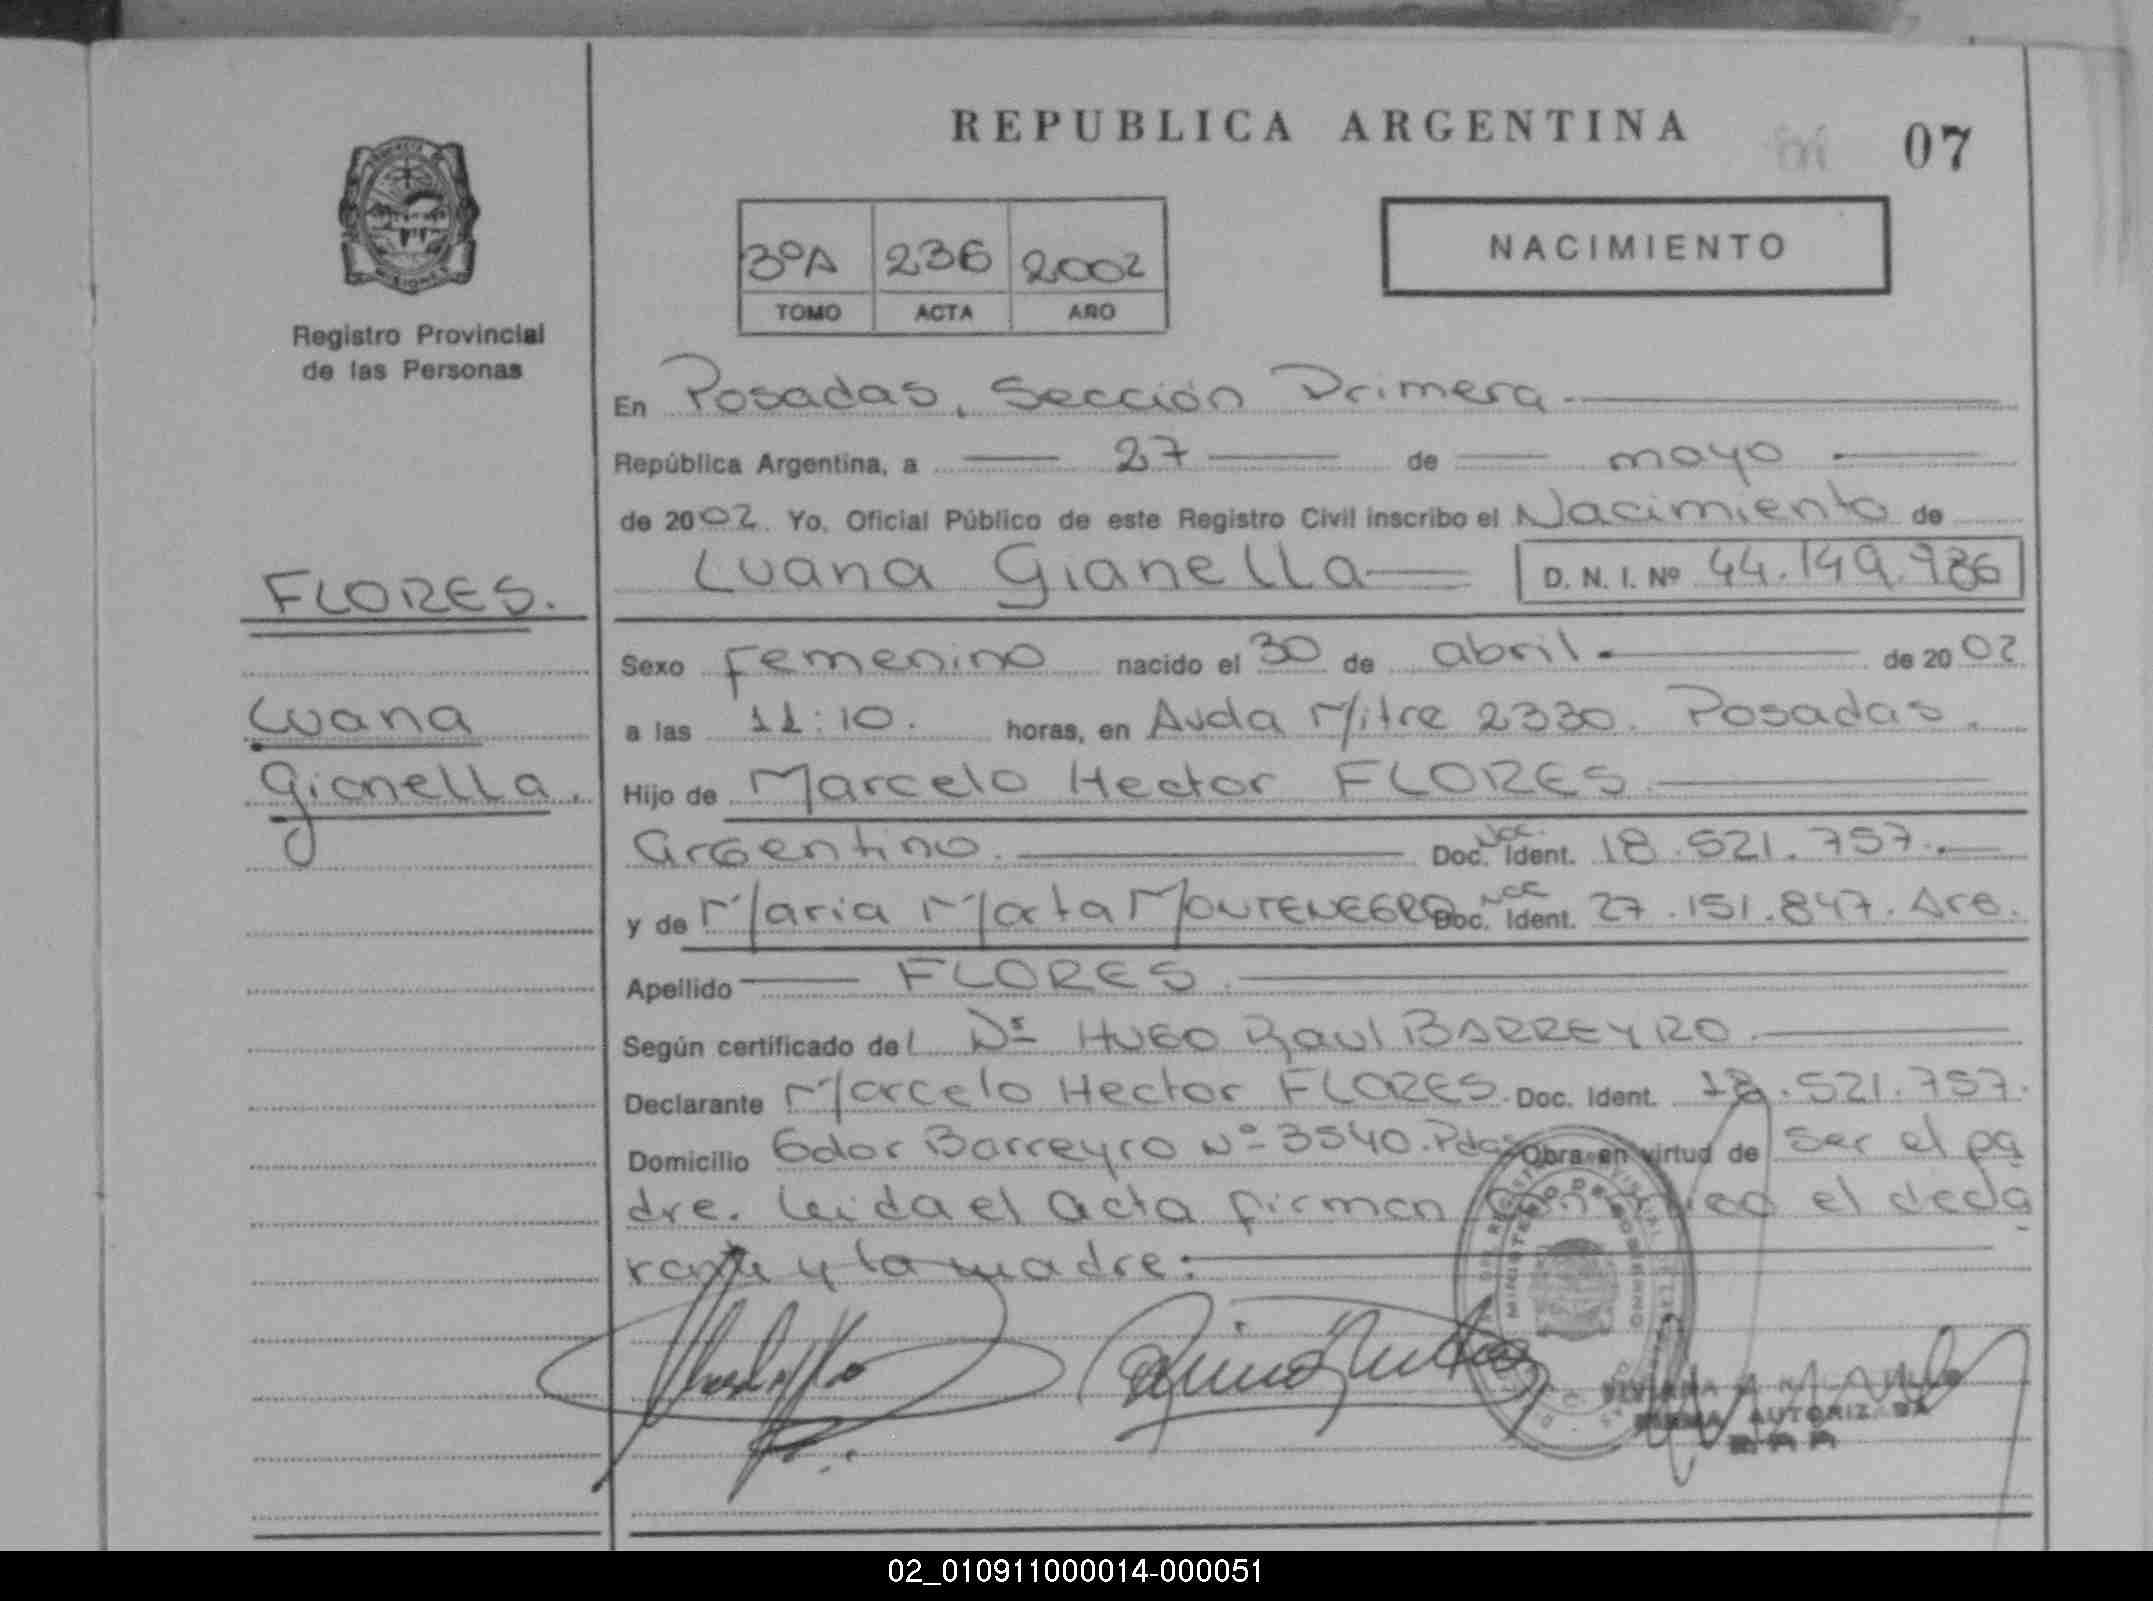 REPUBLICA ARGENTINA
07
3ºA 236 2002
TOMO ACTA AÑO
NACIMIENTO
Registro Provincial
de las Personas
En Posadas, Sección Primera
República Argentina, a 27 de mayo
de 2002. Yo, Oficial Público de este Registro Civil inscribo el Nacimiento de
Luana Gianella D. N. I. Nº 44.149.986
FLORES.
Luana
Gianella.
Sexo Femenino nacido el 30 de abril de 2002
a las 11:10. horas, en Avda Mitre 2330. Posadas.
Hijo de Marcelo Hector FLORES
Argentino. Doc. Ident. 18.521.757.
y de Maria Marta MONTENEGRO Doc. Ident. 27.151.847. Arg.
Apellido FLORES.
Según certificado del Dr HUGO Raul BARREYRO
Declarante Marcelo Hector FLORES. Doc. Ident. 18.521.757.
Domicilio Gdor Barreyro Nº 3540. Pdas Obra en virtud de ser el pa
dre. Leida el acta firman el decla
rante y la madre.
MINISTERIO DE GOBIERNO
FIRMA AUTORIZADA
02_010911000014-000051